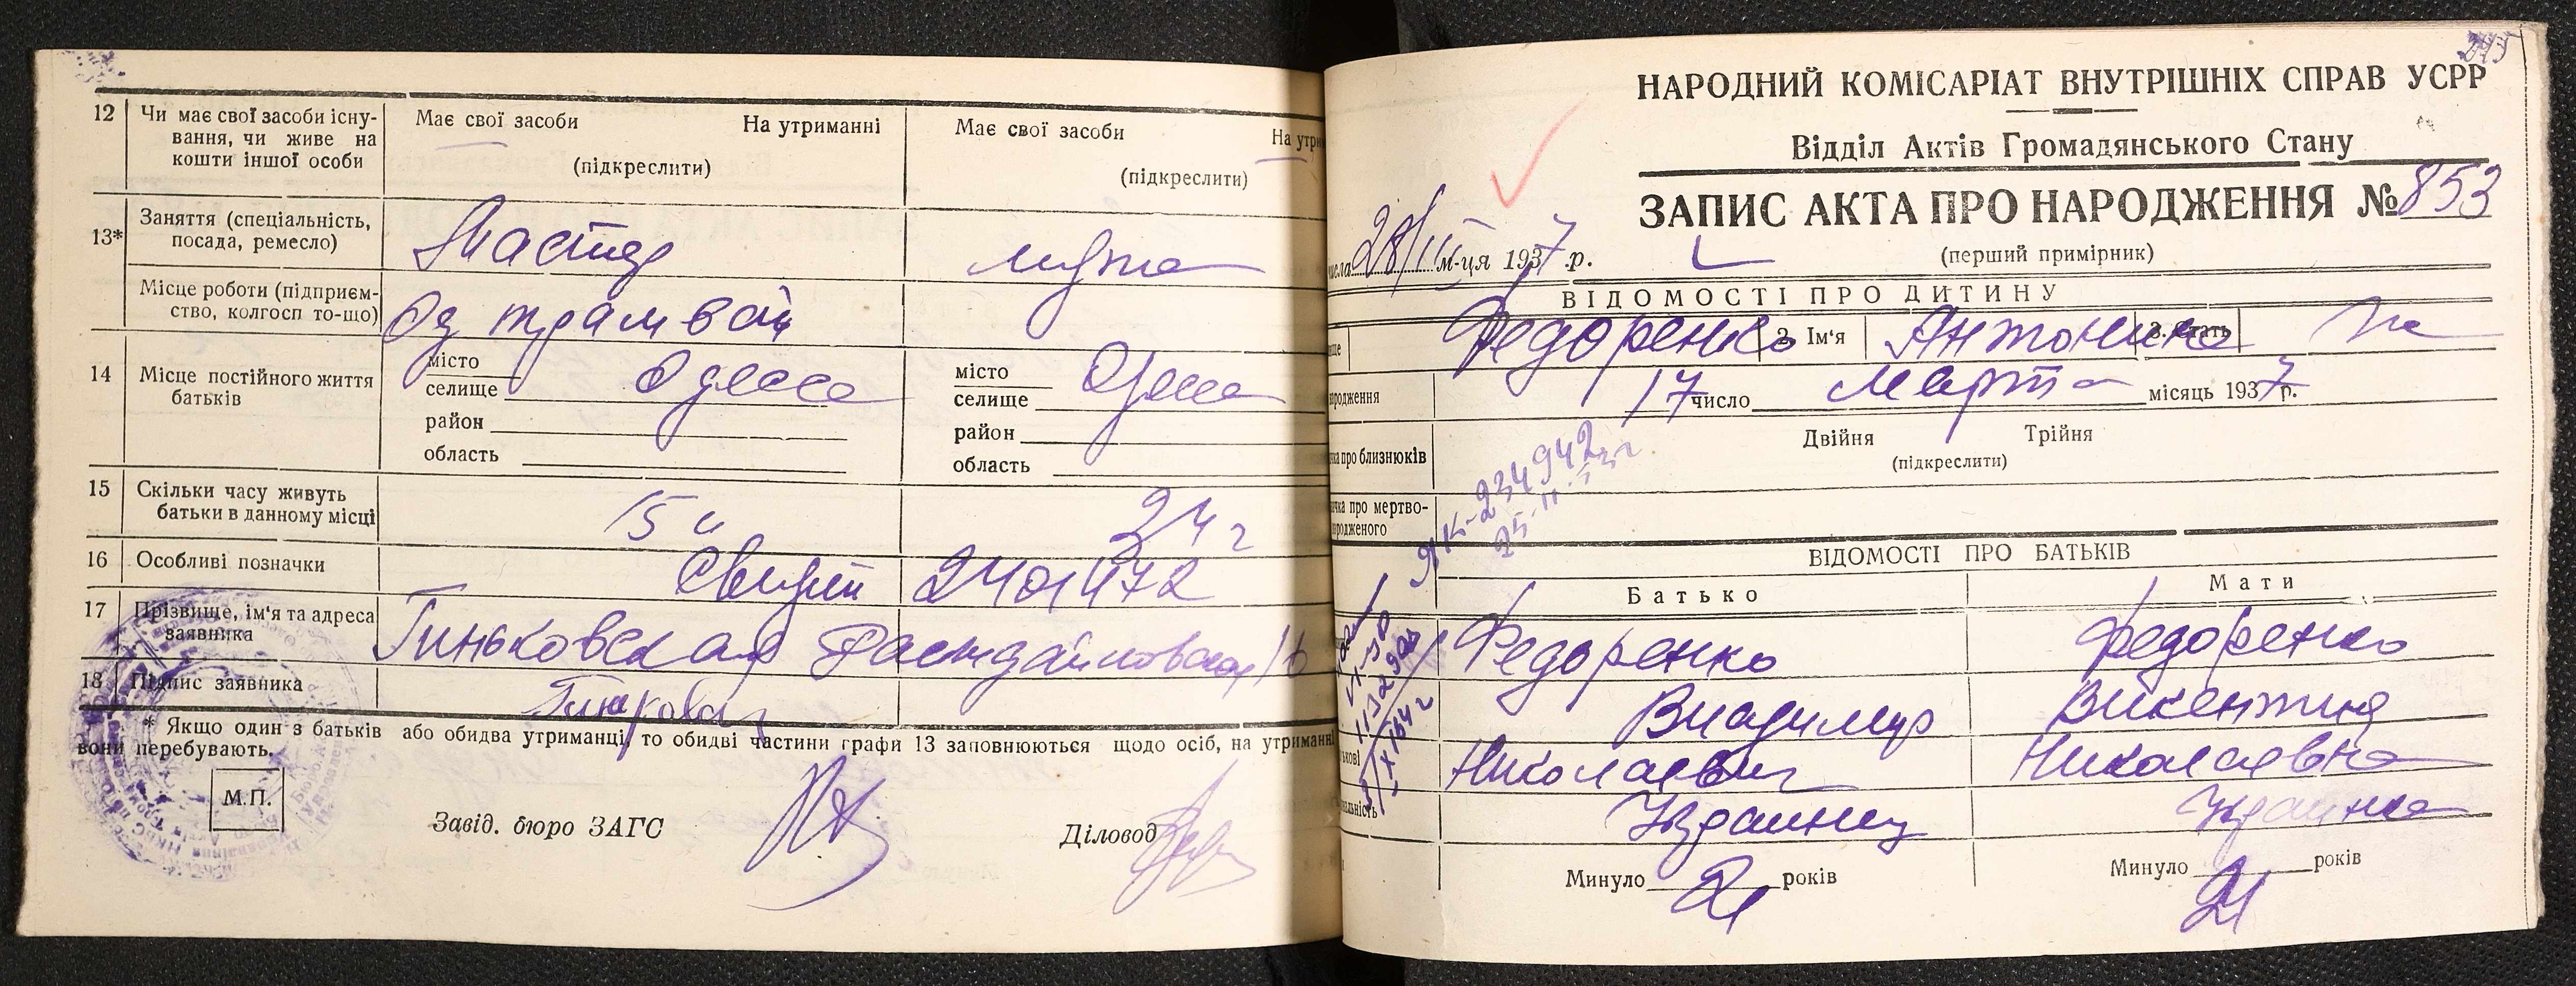 12
Чи має свої засоби існу-
вання, чи живе на
кошти іншої особи
Має свої засоби На утриманні
(підкреслити)
Має свої засоби На утри
(підкреслити)
13*
Заняття (спеціальність,
посада, ремесло)
Мастер
мужа
Місце роботи (підприєм-
ство, колгосп то-що)
Од трамвай
14
Місце постійного життя
батьків
місто
селище Одесса
район
область
місто
селище Одесса
район
область
15
Скільки часу живуть
батьки в данному місці
15 л
21 г
16
Особливі позначки
2401472
17
Прізвище, ім'я та адреса
заявника
Гиньковская
18
Підпис заявника
* Якщо один з батьків або обидва утриманці, то обидві частини графи 13 заповнюються щодо осіб, на утриманні
вони перебувають.
М.П.
Завід. бюро ЗАГС
Діловод
НАРОДНИЙ КОМІСАРІАТ ВНУТРІШНІХ СПРАВ УСРР
Відділ Актів Громадянського Стану
ЗАПИС АКТА ПРО НАРОДЖЕННЯ № 853
(перший примірник)
исла 28/III м-ця 1937 р.
ВІДОМОСТІ ПРО ДИТИНУ
ище Федоренко 2. Ім'я Антонина 3. Стать
ародження 17 число Марта місяць 1937 р.
чка про близнюків
Двійня Трійня
(підкреслити)
чка про мертво-
родженого
ЯК-234942
ВІДОМОСТІ ПРО БАТЬКІВ
Батько Мати
Федоренко Федоренко
Владимир Викентия
ькові Николаевич Николаевна
альність Украинец Украинка
Минуло 21 років
Минуло 21 років